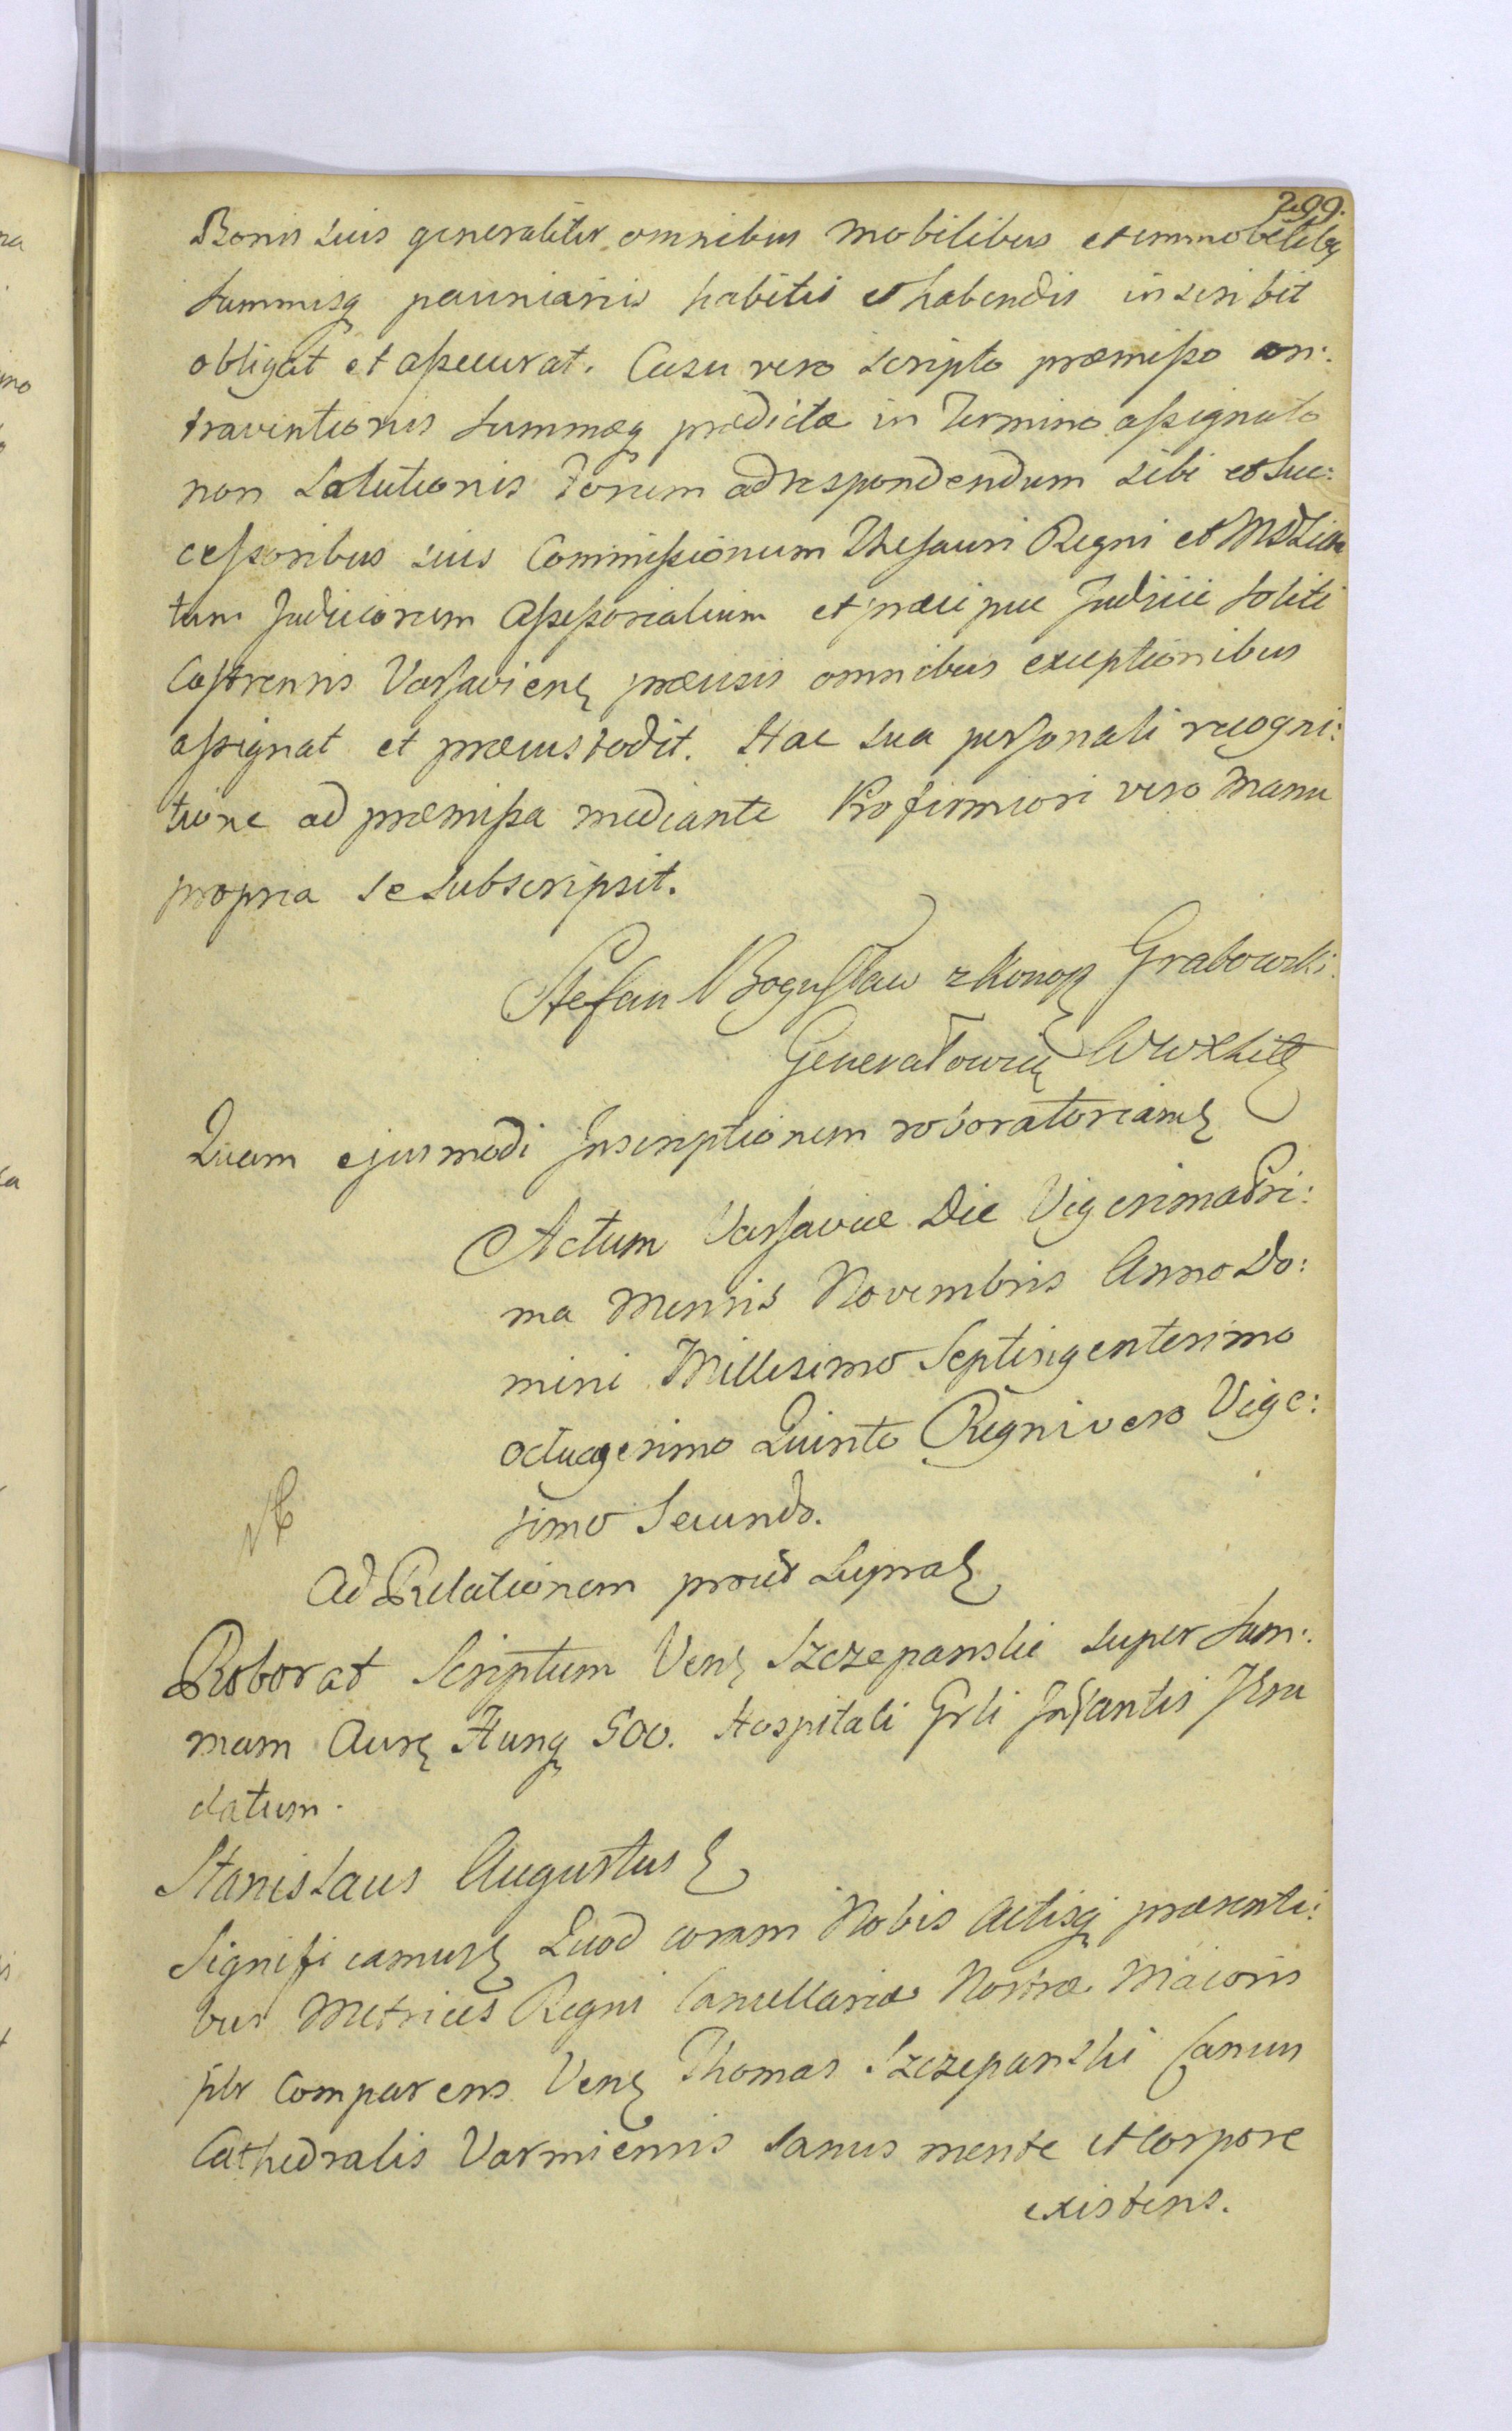 299.
Bonis suis generaliter omnibus mobilibus et immobilibq
Summisq pecuniariis habitis et habendis inscribit
obligat et assecurat. Casu vero scripto præmisso con:
traventionis Summæq prædictæ in Termino assignato
non Solutionis Forum ad respondendum sibi et Suc:
cessoribus suis Commissionum Thesauri Regni et
tum Judiciorum Assessorialium et præcipue Judicii soliti
Castrensis Varsavienς præcisis omnibus exceptionibus
assignat et præcustodit. Hac sua personali recogni:
tione ad præmissa mediante Pro firmiori vero Manu
propria se Subscripsit.
Stefan Bogusław z Konop Grabowski
Generałowicz WWXLitt
Quam ejusmodi Inscriptionem roboratoriamς
Actum Varsaviæ Die Vigesima Pri:
ma Mensis Novembris Anno Do:
mini Millesimo Septingentesimo
octuagesimo Quinto Regni vero Vige:
simo Secundo.
Ad Relationem prout Supraς
Roborat Scriptum Venς Szczepanski super Sum:
mam Aurς Hungς 500. Hospitali Grli Infantis Jesu
datum.
Stanislaus Augustus ς
Significamusς Quod coram Nobis Actisq præsenti:
bus Metrices Regni Cancellariæ Nostræ Maioris
plr Comparens Venς Thomas Szczepanski Canus
Cathedralis Varmiensis sanus mente et corpore
existens.